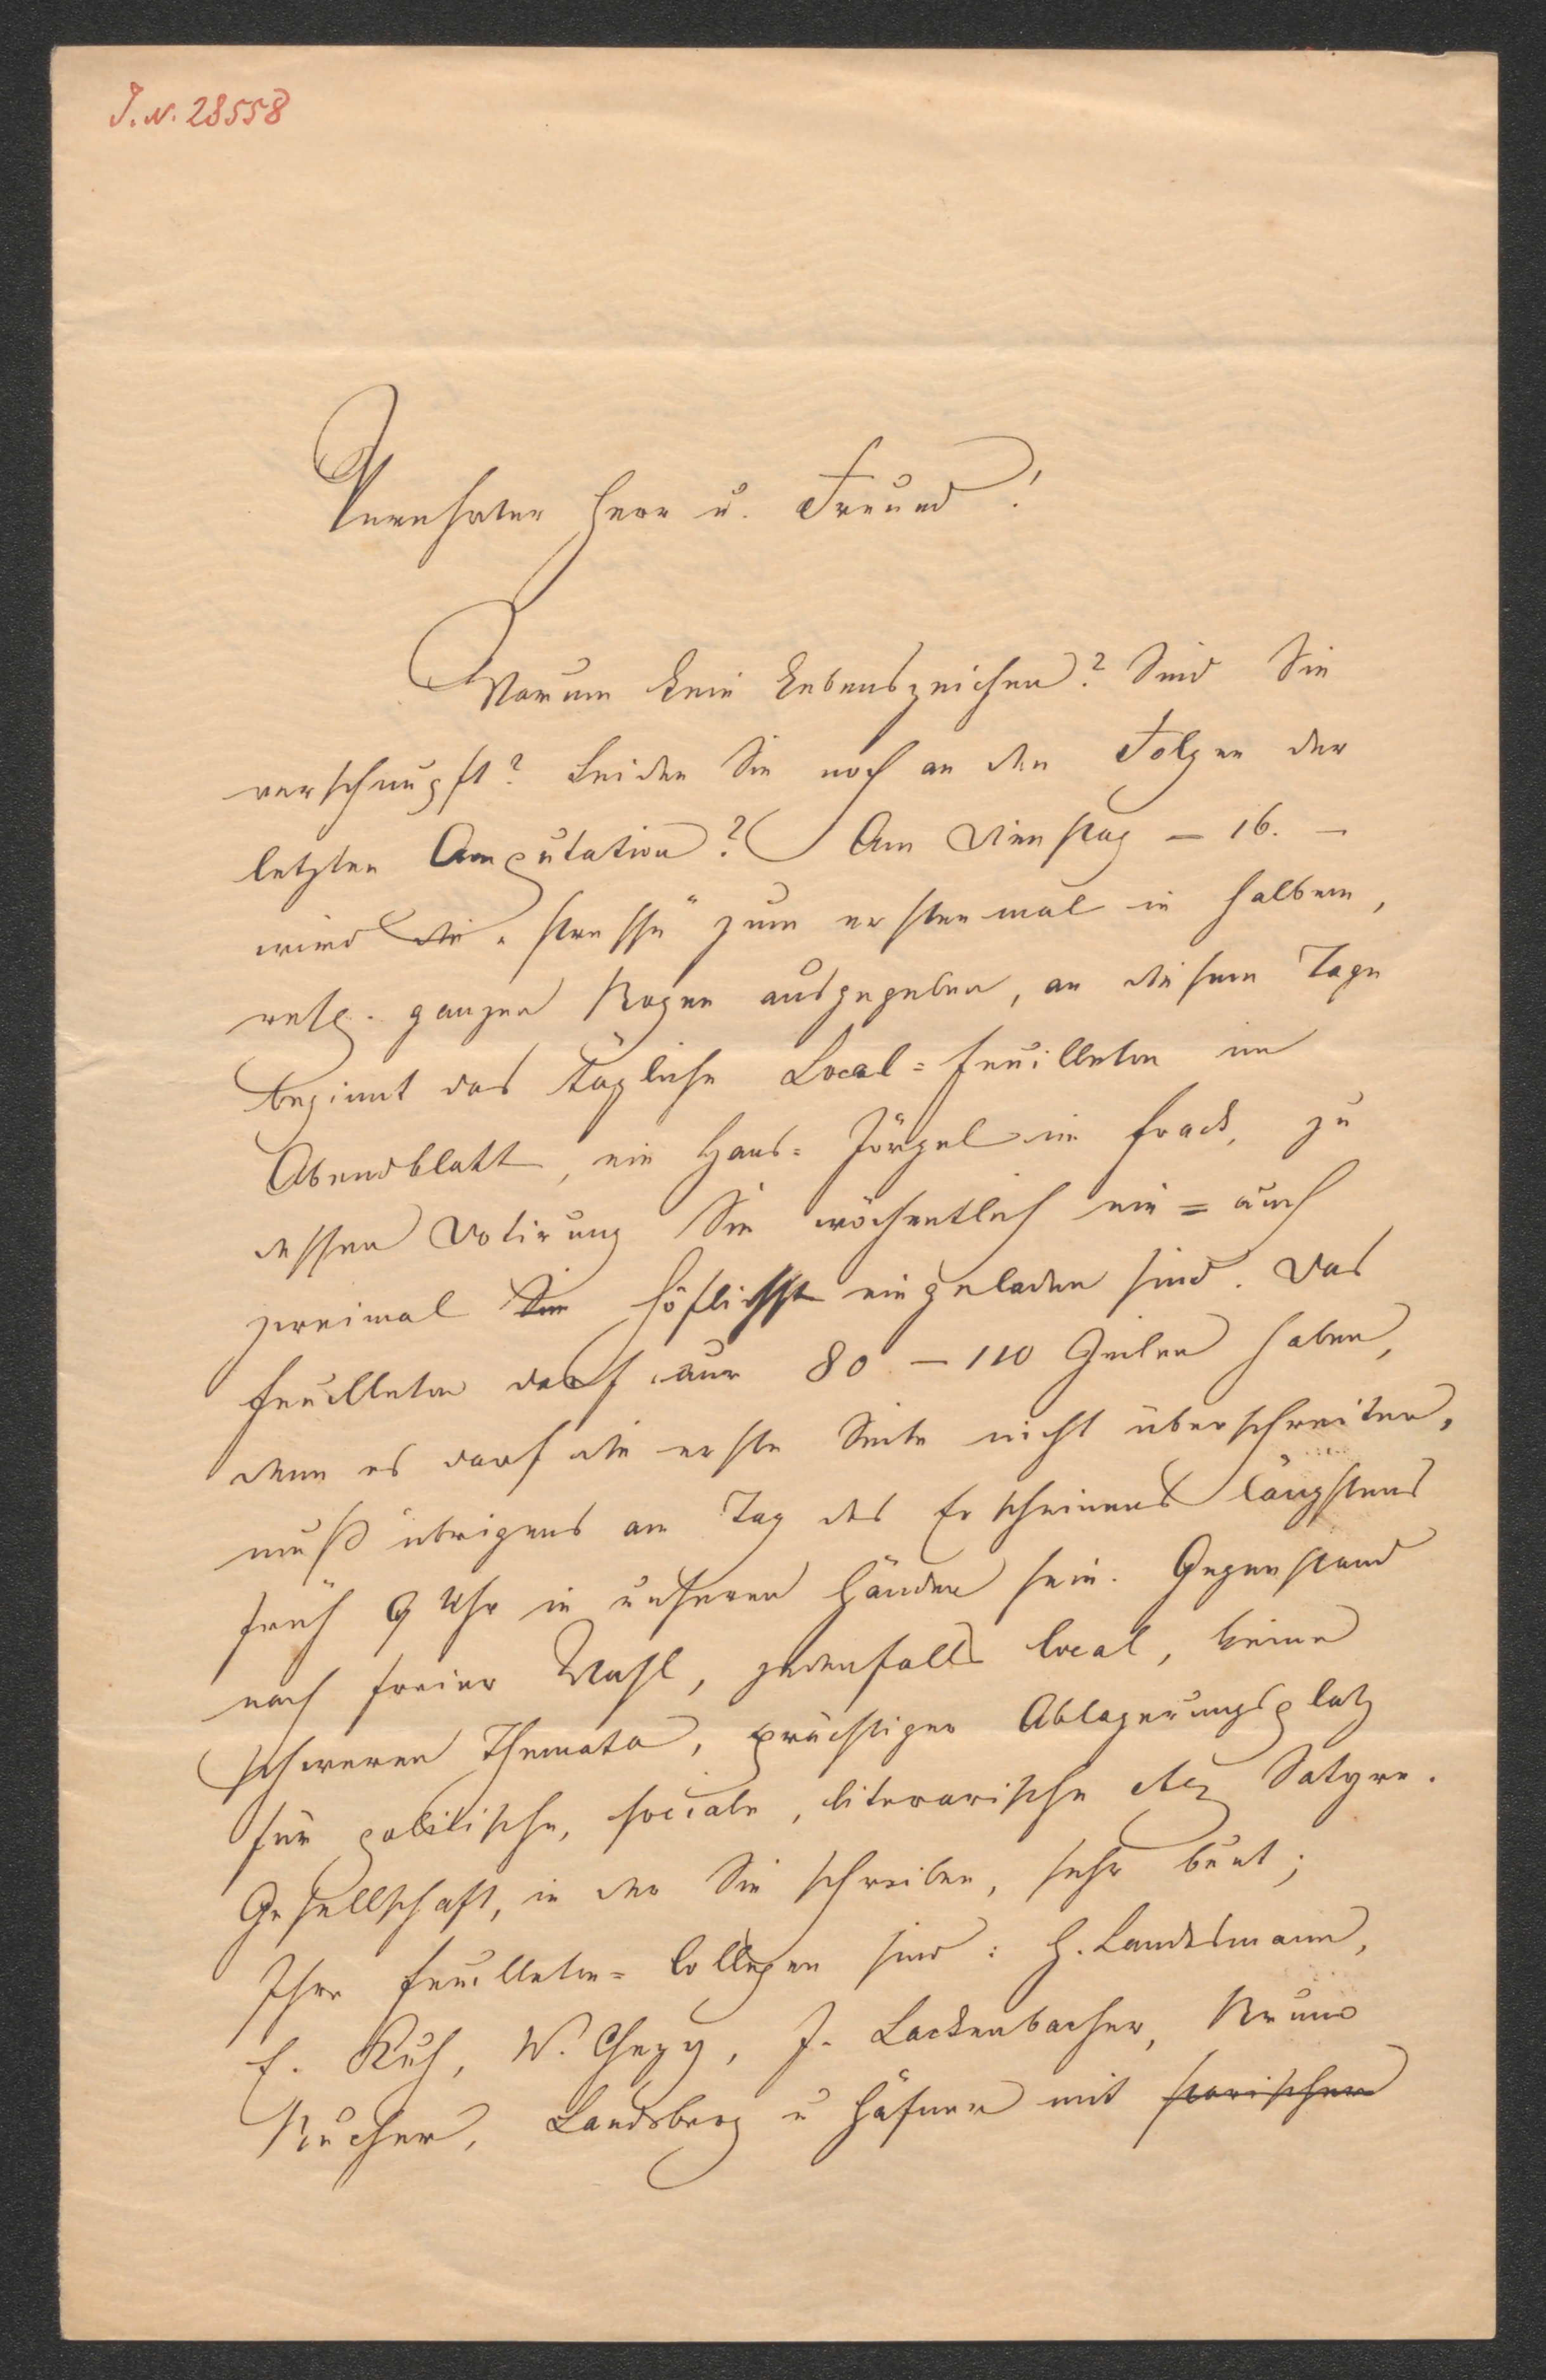 I. N. 28558
Verehrter Herr u. Freund!
Warum kein Lebenszeichen? Sind Sie
verschnupft? Leiden Sie noch an den Folgen der
letzten Amputation? Am Dienstag – 16. –
wird die „Presse" zum erstenmal in halbem,
resp. ganzen Bogen ausgegeben, an diesem Tage
beginnt das tägliche Local=Feuilleton im
Abendblatt, ein Hans=Jörgel im Frack, zu
dessen Dotirung Sie wöchentlich ein= auch
zweimal höflichst eingeladen sind. Das
Feuilleton darf nur 80 – 110 Zeilen haben,
denn es darf die erste Seite nicht überschreiten,
muß übrigens am Tag des Erscheinens längstens
früh 9 Uhr in unseren Händen sein. Gegenstand
nach freier Wahl, jedenfalls local, keine
schweren Themata, prächtiger Ablagerungsplatz
für politische, sociale, literarische etc Satyre.
Gesellschaft, in der Sie schreiben, sehr bunt;
Ihre Feuilleton=Collegen sind: H. Landesmann,
E. Kuh, W. Chezy, J. Lackenbacher, Bruno
Bucher, Landsberg u Häfner mit